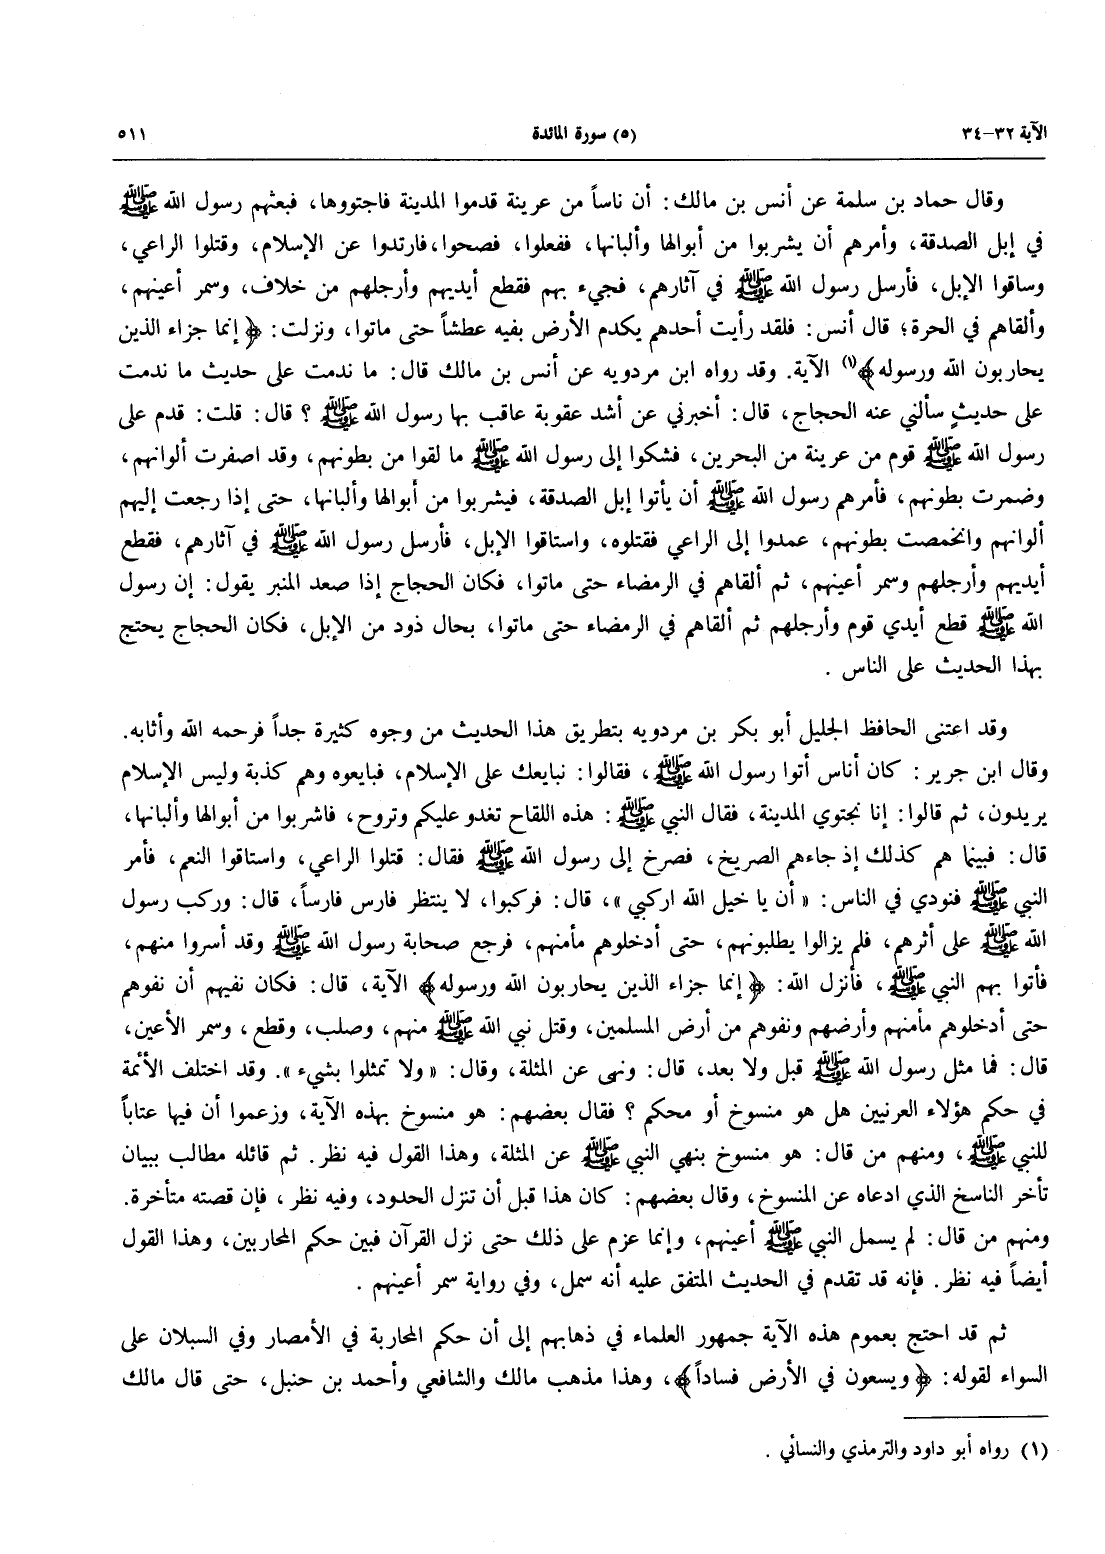 الآية ٣٢-٣٤ (٥) سورة المائدة ٥١١
وقال حماد بن سلمة عن أنس بن مالك: أن ناساً من عرينة قدموا المدينة فاجتووها، فبعثهم رسول الله ﷺ
في إبل الصدقة، وأمرهم أن يشربوا من أبوالها وألبانها، ففعلوا، فصحوا،فارتدوا عن الإسلام، وقتلوا الراعي،
وساقوا الإبل، فأرسل رسول الله ﷺ في آثارهم، فجيء بهم فقطع أيديهم وأرجلهم من خلاف، وسمر أعينهم،
وألقاهم في الحرة؛ قال أنس: فلقد رأيت أحدهم يكدم الأرض بفيه عطشاً حتى ماتوا، ونزلت: ﴿إنما جزاء الذين
يحاربون الله ورسوله﴾(١) الآية. وقد رواه ابن مردويه عن أنس بن مالك قال: ما ندمت على حديث ما ندمت
على حديثٍ سألني عنه الحجاج، قال: أخبرني عن أشد عقوبة عاقب بها رسول الله ﷺ ؟ قال: قلت: قدم على
رسول الله ﷺ قوم من عرينة من البحرين، فشكوا إلى رسول الله ﷺ ما لقوا من بطونهم، وقد اصفرت ألوانهم،
وضمرت بطونهم، فأمرهم رسول الله ﷺ أن يأتوا إبل الصدقة، فيشربوا من أبوالها وألبانها، حتى إذا رجعت إليهم
ألوانهم وانخمصت بطونهم، عمدوا إلى الراعي فقتلوه، واستاقوا الإبل، فأرسل رسول الله ﷺ في آثارهم، فقطع
أيديهم وأرجلهم وسمر أعينهم، ثم ألقاهم في الرمضاء حتى ماتوا، فكان الحجاج إذا صعد المنبر يقول: إن رسول
الله ﷺ قطع أيدي قوم وأرجلهم ثم ألقاهم في الرمضاء حتى ماتوا، بحال ذود من الإبل، فكان الحجاج يحتج
بهذا الحديث على الناس .
وقد اعتنى الحافظ الجليل أبو بكر بن مردويه بتطريق هذا الحديث من وجوه كثيرة جداً فرحمه الله وأثابه.
وقال ابن جرير : كان أناس أتوا رسول الله ﷺ، فقالوا: نبايعك على الإسلام، فبايعوه وهم كذبة وليس الإسلام
يريدون، ثم قالوا: إنا نجتوي المدينة، فقال النبي ﷺ : هذه اللقاح تغدو عليكم وتروح، فاشربوا من أبوالها وألبانها،
قال: فبينما هم كذلك إذ جاءهم الصريخ، فصرخ إلى رسول الله ﷺ فقال: قتلوا الراعي، واستاقوا النعم، فأمر
النبي ﷺ فنودي في الناس: « أن يا خيل الله اركبي »، قال: فركبوا، لا ينتظر فارس فارساً، قال: وركب رسول
الله ﷺ على أثرهم، فلم يزالوا يطلبونهم، حتى أدخلوهم مأمنهم، فرجع صحابة رسول الله ﷺ وقد أسروا منهم،
فأتوا بهم النبي ﷺ، فأنزل الله: ﴿إنما جزاء الذين يحاربون الله ورسوله﴾ الآية، قال: فكان نفيهم أن نفوهم
حتى أدخلوهم مأمنهم وأرضهم ونفوهم من أرض المسلمين، وقتل نبي الله ﷺ منهم، وصلب، وقطع، وسمر الأعين،
قال: فما مثل رسول الله ﷺ قبل ولا بعد، قال: ونهى عن المثلة، وقال: « ولا تمثلوا بشيء ». وقد اختلف الأئمة
في حكم هؤلاء العرنيين هل هو منسوخ أو محكم ؟ فقال بعضهم: هو منسوخ بهذه الآية، وزعموا أن فيها عتاباً
للنبي ﷺ، ومنهم من قال: هو منسوخ بنهي النبي ﷺ عن المثلة، وهذا القول فيه نظر. ثم قائله مطالب ببيان
تأخر الناسخ الذي ادعاه عن المنسوخ، وقال بعضهم: كان هذا قبل أن تنزل الحدود، وفيه نظر ، فإن قصته متأخرة.
ومنهم من قال: لم يسمل النبي ﷺ أعينهم، وإنما عزم على ذلك حتى نزل القرآن فبين حكم المحاربين، وهذا القول
أيضاً فيه نظر. فإنه قد تقدم في الحديث المتفق عليه أنه سمل، وفي رواية سمر أعينهم .
ثم قد احتج بعموم هذه الآية جمهور العلماء في ذهابهم إلى أن حكم المحاربة في الأمصار وفي السبلان على
السواء لقوله: ﴿ويسعون في الأرض فساداً﴾، وهذا مذهب مالك والشافعي وأحمد بن حنبل، حتى قال مالك
(١) رواه أبو داود والترمذي والنسائي .